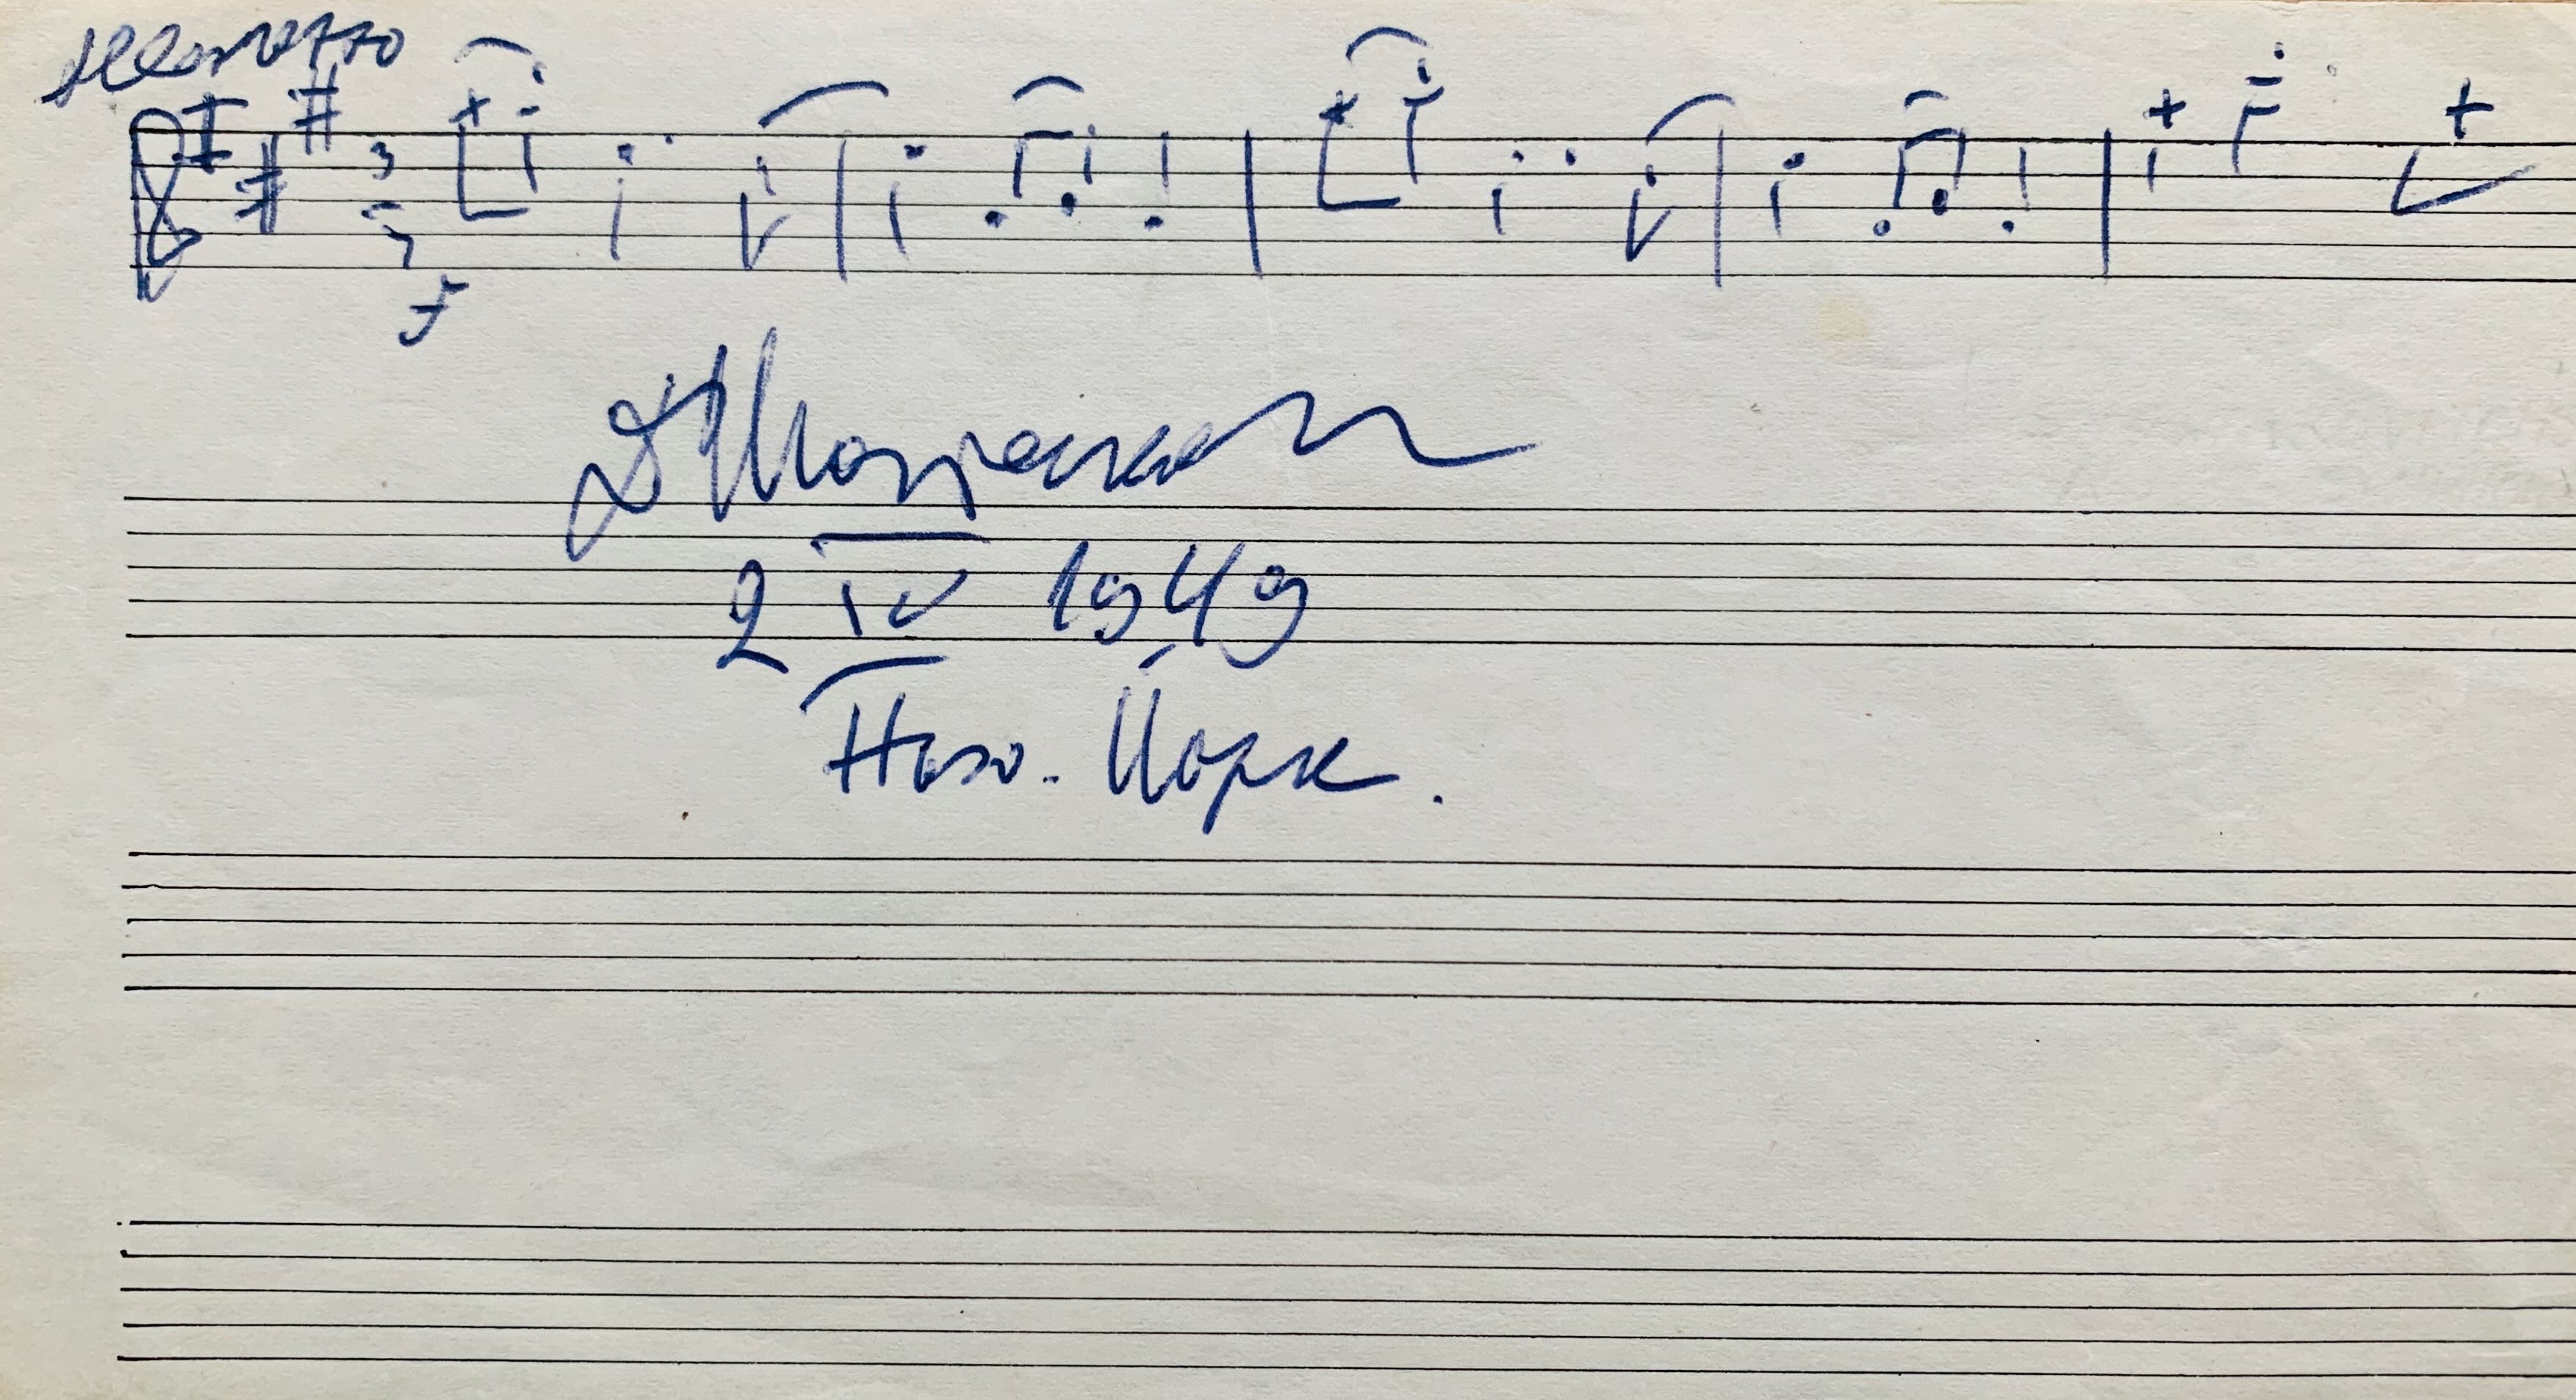 Allegretto
3
f
Д Шостакович
2 IV 1949
Нью-Йорк.